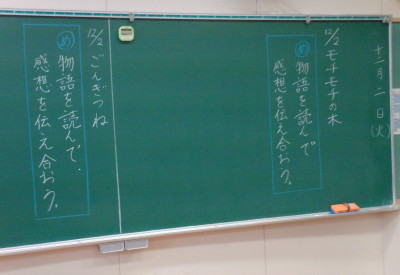 十二月二日(火)
12/2 モチモチの木
め 物語を読んで
感想を伝え合おう。
12/2 ごんぎつね
め 物語を読んで、
感想を伝え合おう。